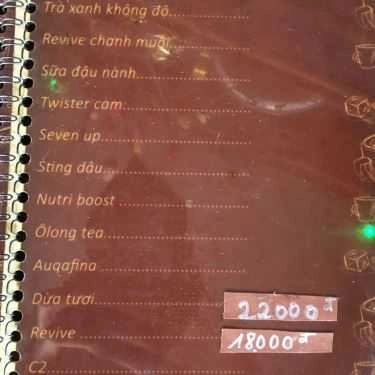 Trà xanh không độ
Revive chanh muối
Sữa đậu nành
Twister cam
Seven up
Sting dâu
Nutri boost
Ôlong tea
Auqafina
Dừa tươi 22000đ
Revive 18000đ
C2